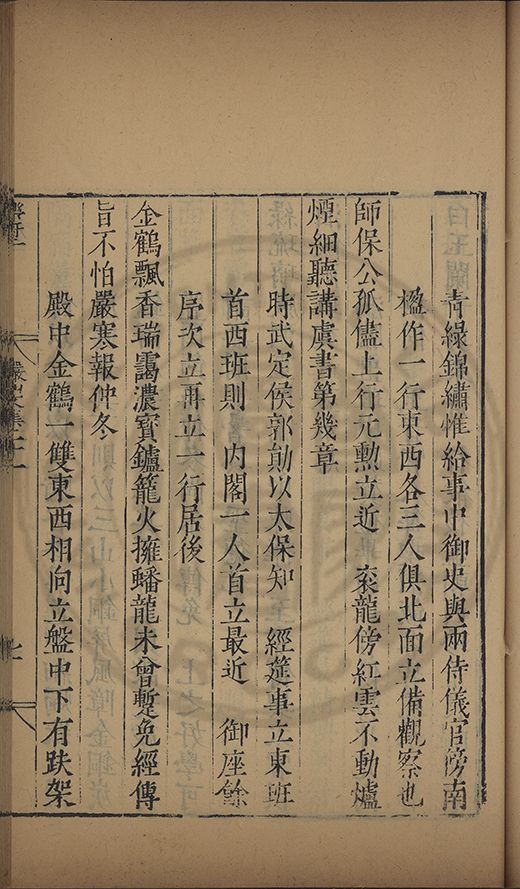 青綠錦繡惟給事中御史與兩侍儀官傍南
楹作一行東西各三人俱北面立備觀察也
師保公孤儘上行元勲立近　袞龍傍紅雲不動爐
煙細聽講虞書第幾章
時武定侯郭勛以太保知　經筵事立東班
首西班則　內閣一人首立最近　御座餘
序次立再立一行居後
金鶴飄香瑞靄濃寳鑪籠火擁蟠龍未曾蹔免經傳
旨不怕嚴寒報仲冬
殿中金鶴一雙東西相向立盤中下有趺架